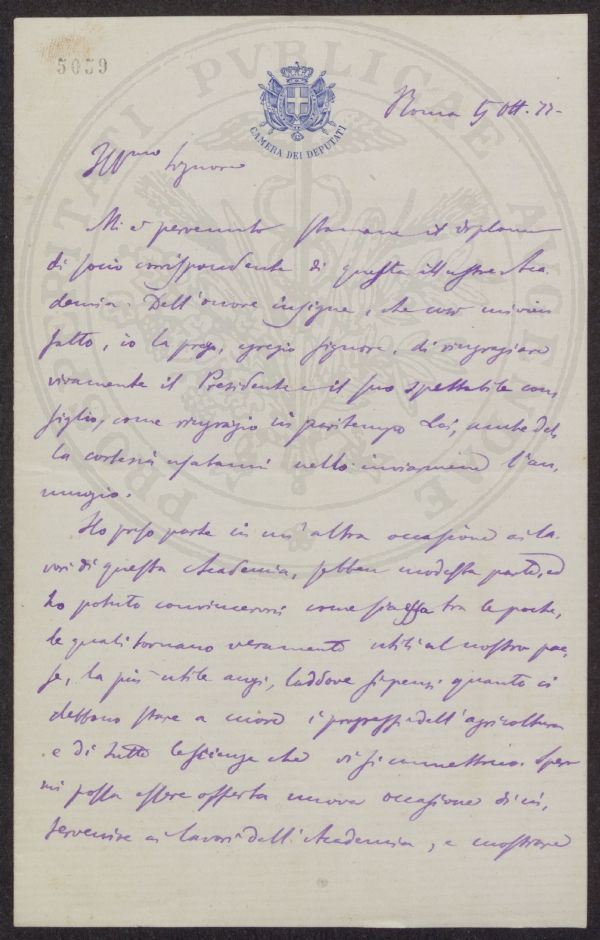 5039
PROSPERITATI PVBLICAE AVGENDAE
CAMERA DEI DEPUTATI
Roma Ott. 77-
Ill.mo Signore
Mi è pervenuto stamane il diploma
di socio corrispondente di questa illustre Aca-
demia. Dell'onore insigne, che così mi vien
fatto, io la prego, egregio Signore, di ringraziare
vivamente il Presidente e il suo spettabile con,
siglio, come ringrazio in pari tempo Lei, anche del,
la cortesia usatami nello inviarmene l'an,
nunzio.
Ho preso parte in un'altra occasione ai la-
vori di questa Academia, sebben modesta parte, ed
ho potuto convincermi come sia essa tra le poche,
le quali tornano veramente utili al nostro pae,
se, la più utile anzi, laddove si pensi quanto ci
debbono stare a cuore i progressi dell'agricoltura
e di tutte le scienze che vi si connettono. Spero
mi possa essere offerta nuova occasione di in,
tervenire ai lavori dell'Academia, e mostrare